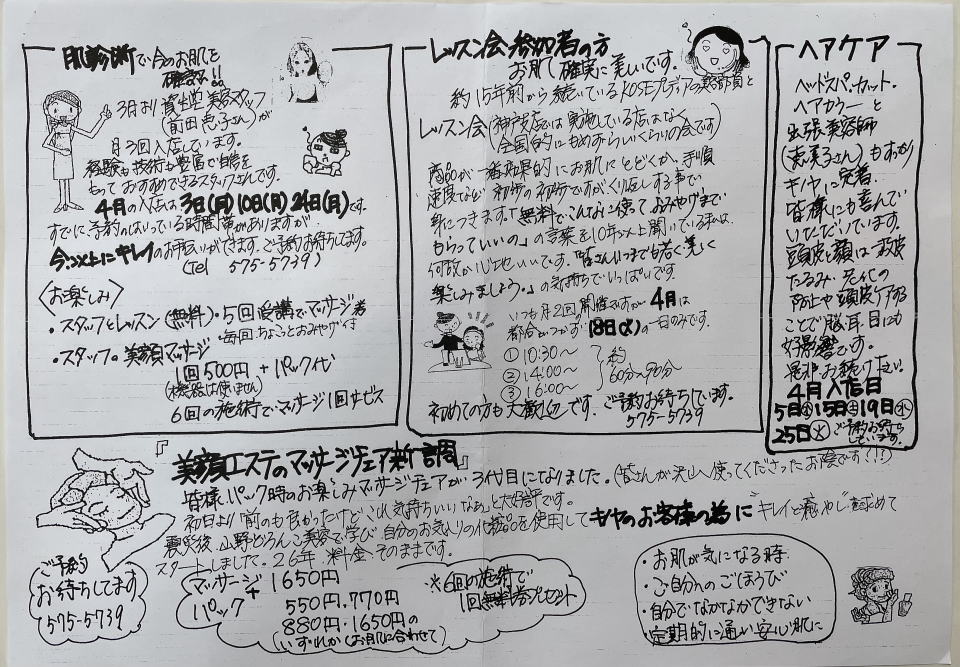 肌診断で今のお肌を
確認!!
3日より資生堂美容スタッフ
(前田恵子さん)が
月3回入店しています。
経験も技術も豊富で自信を
もっておすすめできるスタッフさんです。
4月の入店は3日(月)10日(月)24日(月)です。
すでに予約のはいっている時間帯がありますが
今以上にキレイのお手伝いができます。ご予約お待ちしてます。
(Tel 575-5739)
〈お楽しみ〉
・スタッフとレッスン(無料)・5回受講でマッサージ券
毎回ちょこっとおみやげ付
・スタッフの美顔マッサージ
1回500円+パック代
(機器は使いません)
6回の施術でマッサージ1回サービス
レッスン会参加者の方
お肌て確実に美しいです。
約15年前から続いているKOSEプレディアの美容部員と
レッスン会(神戸支店では実施している店はなく
全国的にもめずらしいくらいの会です)
商品が一番効果的にお肌にとどくか、手順
速度など初歩の初歩ですがくり返しする事で
身につきます。「無料でこんなに使っておみやげまで
もらっていいの。」の言葉を10年以上聞いている私は、
何故か心地いいです。「皆さんいつまでも若く美しく
楽しみましょう。」の気持ちでいっぱいです。
いつも月2回開催ですが4月は
都合がつかず18日(火)の一日のみです。
①10:30〜
②14:00〜
③16:00〜
約
60分〜90分
初めての方も大歓迎です。ご予約お待ちしています。
575-5739
ヘアケア
ヘッドスパ、カット、
ヘアカラーと
出張美容師
(恵美子さん)もすっかり
キノヤに定着。
皆様にも喜んで
いただいています。
頭皮と顔は一枚皮
たるみ・老化の
防止や頭皮ケアする
ことで脳、耳、目にも
好影響です。
是非お試し下さい。
4月入店日
5日(水)15日(土)19日(水)
25日(火)ご予約お待ち
しています。
『美顔エステのマッサージチェア新調』
皆様、パック時のお楽しみマッサージチェアが、3代目になりました。(皆さんが沢山使ってくださったお陰です!!)
初日より「前のも良かったけど、これ気持ちいいなぁ」と大好評です。
震災後、山野どろんこ美容で学び、自分のお気入りの化粧品を使用してキノヤのお客様の為に"キレイと癒やし"を求めて
スタートしました。26年、料金そのままです。
ご予約
お待ちしてます
575-5739
マッサージ 1650円
+
パック 550円・770円
880円・1650円の
(いずれか(お肌に合わせて)
※6回の施術で
1回無料券プレゼント
・お肌が気になる時
・ご自分へのごほうび
・自分でなかなかできない
・定期的に通い安心肌に